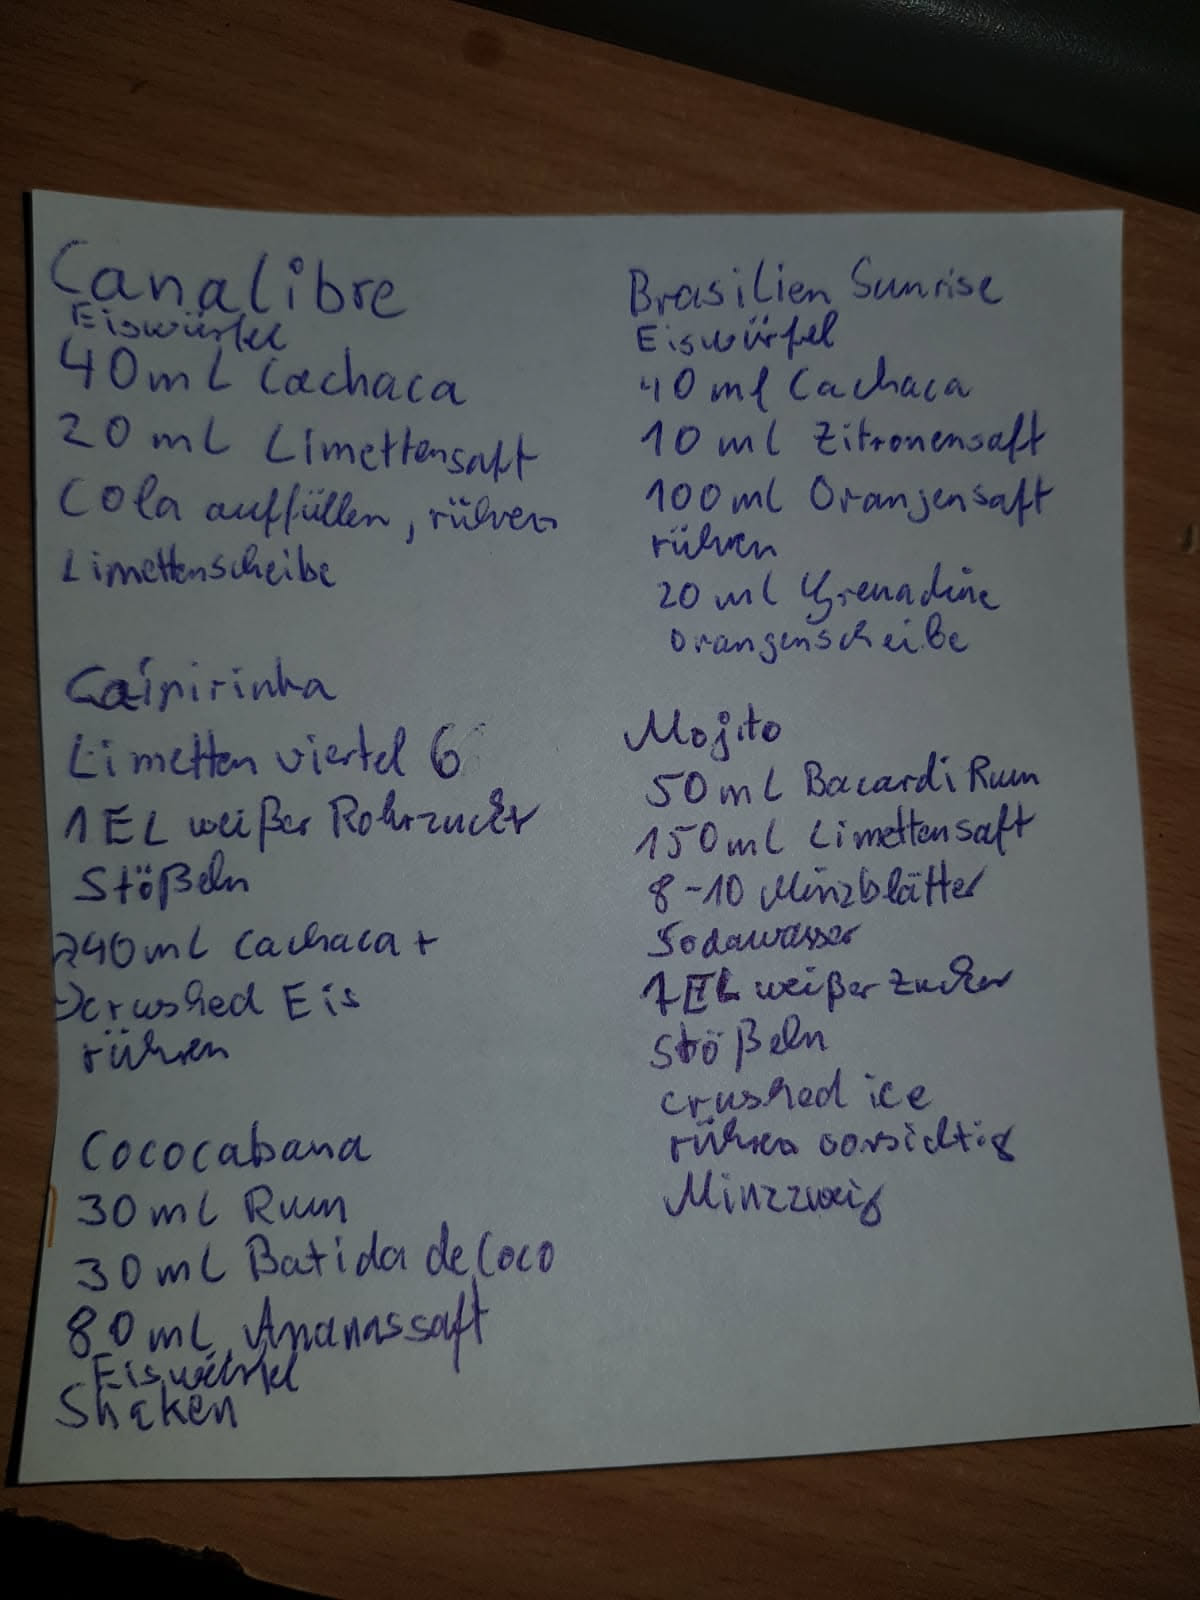 Canalibre
Eiswürfel
40ml Cachaca
20ml Limettensaft
Cola auffüllen, rühren
Limettenscheibe
Caipirinha
Limetten viertel 6
1EL weißer Rohrzucker
Stößeln
240ml Cachaca +
crushed Eis
rühren
Cococabana
30ml Rum
30ml Batida de Coco
80ml Ananassaft
Eiswürfel
Shaken
Brasilien Sunrise
Eiswürfel
40ml Cachaca
10ml Zitronensaft
100ml Oranjensaft
rühren
20ml Grenadine
Orangenscheibe
Mojito
50ml Bacardi Rum
150ml Limettensaft
8-10 Minzblätter
Sodawasser
1EL weißer Zucker
Stößeln
crushed ice
rühren vorsichtig
Minzzweig